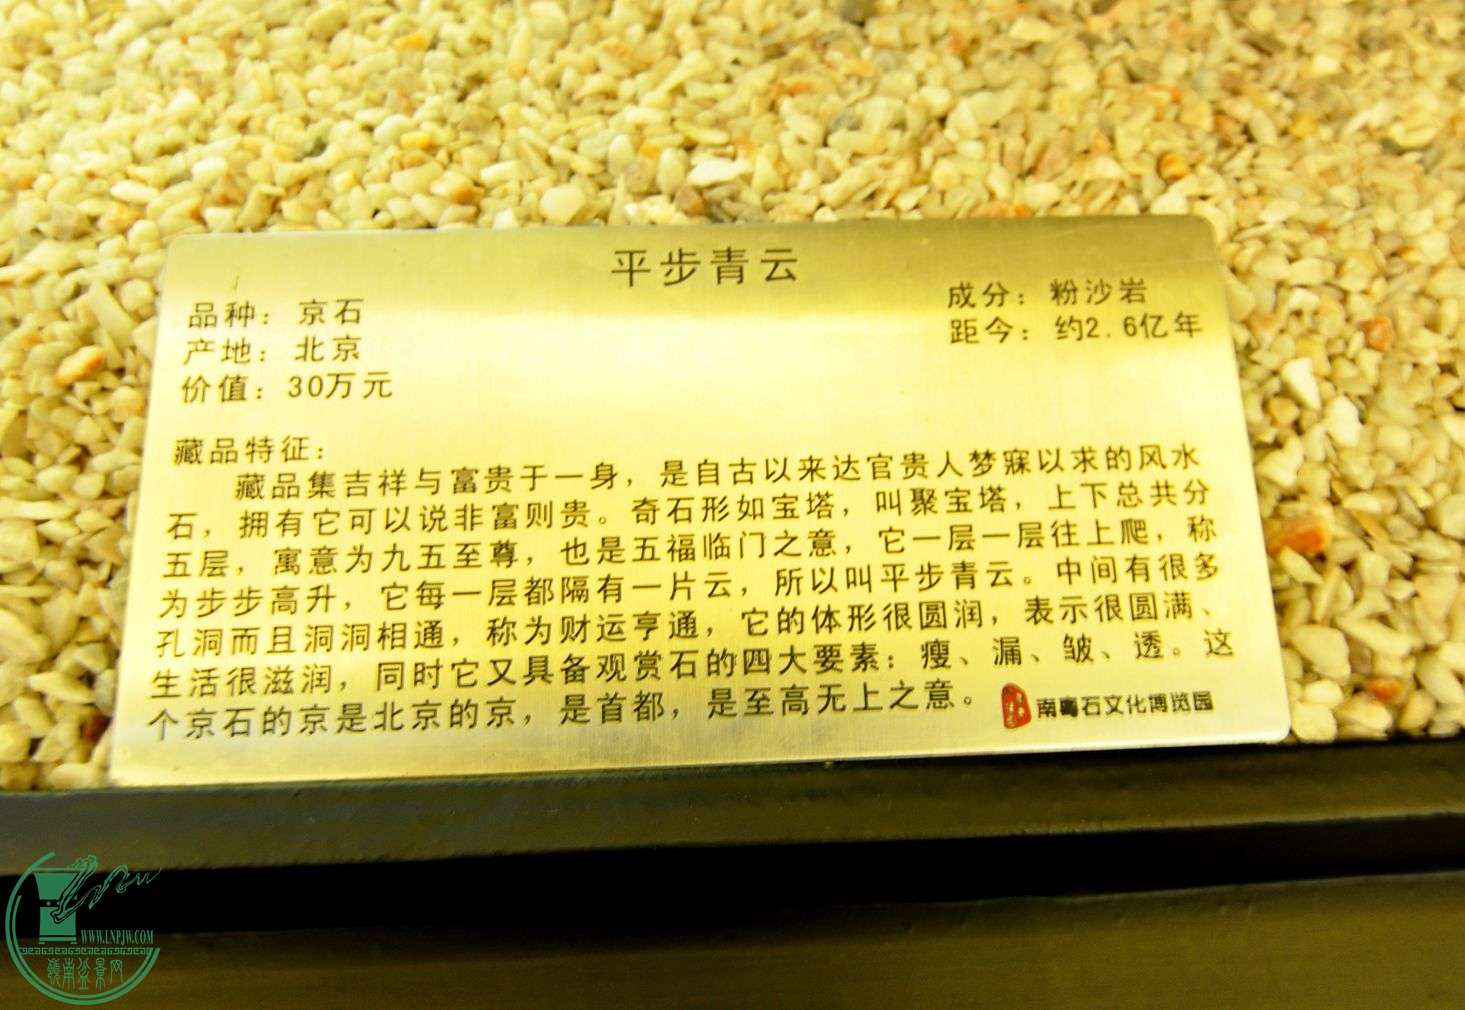 平步青云
品种：京石
成分：粉沙岩
产地：北京
距今：约2.6亿年
价值：30万元
藏品特征：
藏品集吉祥与富贵于一身，是自古以来达官贵人梦寐以求的风水
石，拥有它可以说非富则贵。奇石形如宝塔，叫聚宝塔，上下总共分
五层，寓意为九五至尊，也是五福临门之意，它一层一层往上爬，称
为步步高升，它每一层都隔有一片云，所以叫平步青云。中间有很多
孔洞而且洞洞相通，称为财运亨通，它的体形很圆润，表示很圆满、
生活很滋润，同时它又具备观赏石的四大要素：瘦、漏、皱、透。这
个京石的京是北京的京，是首都，是至高无上之意。
南粤石文化博览园
WWW.LNPJW.COM
嶺南盆景网